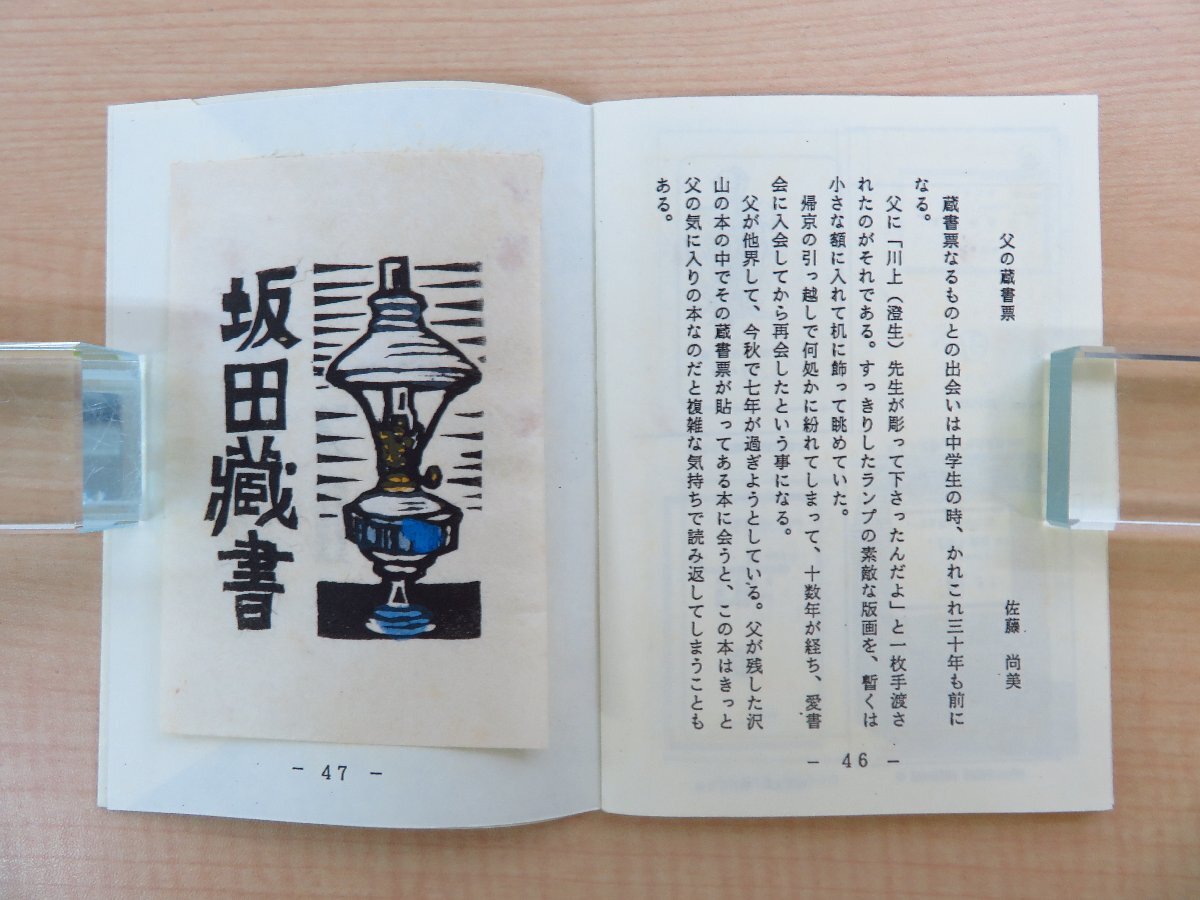 父の蔵書票
佐藤 尚美
蔵書票なるものとの出会いは中学生の時、かれこれ三十年も前に
なる。
父に「川上(澄生)先生が彫って下さったんだよ」と一枚手渡さ
れたのがそれである。すっきりしたランプの素敵な版画を、暫くは
小さな額に入れて机に飾って眺めていた。
帰京の引っ越しで何処かに紛れてしまって、十数年が経ち、愛書
会に入会してから再会したという事になる。
父が他界して、今秋で七年が過ぎようとしている。父が残した沢
山の本の中でその蔵書票が貼ってある本に会うと、この本はきっと
父の気に入りの本なのだと複雑な気持ちで読み返してしまうことも
ある。
- 46 -
坂田藏書
- 47 -